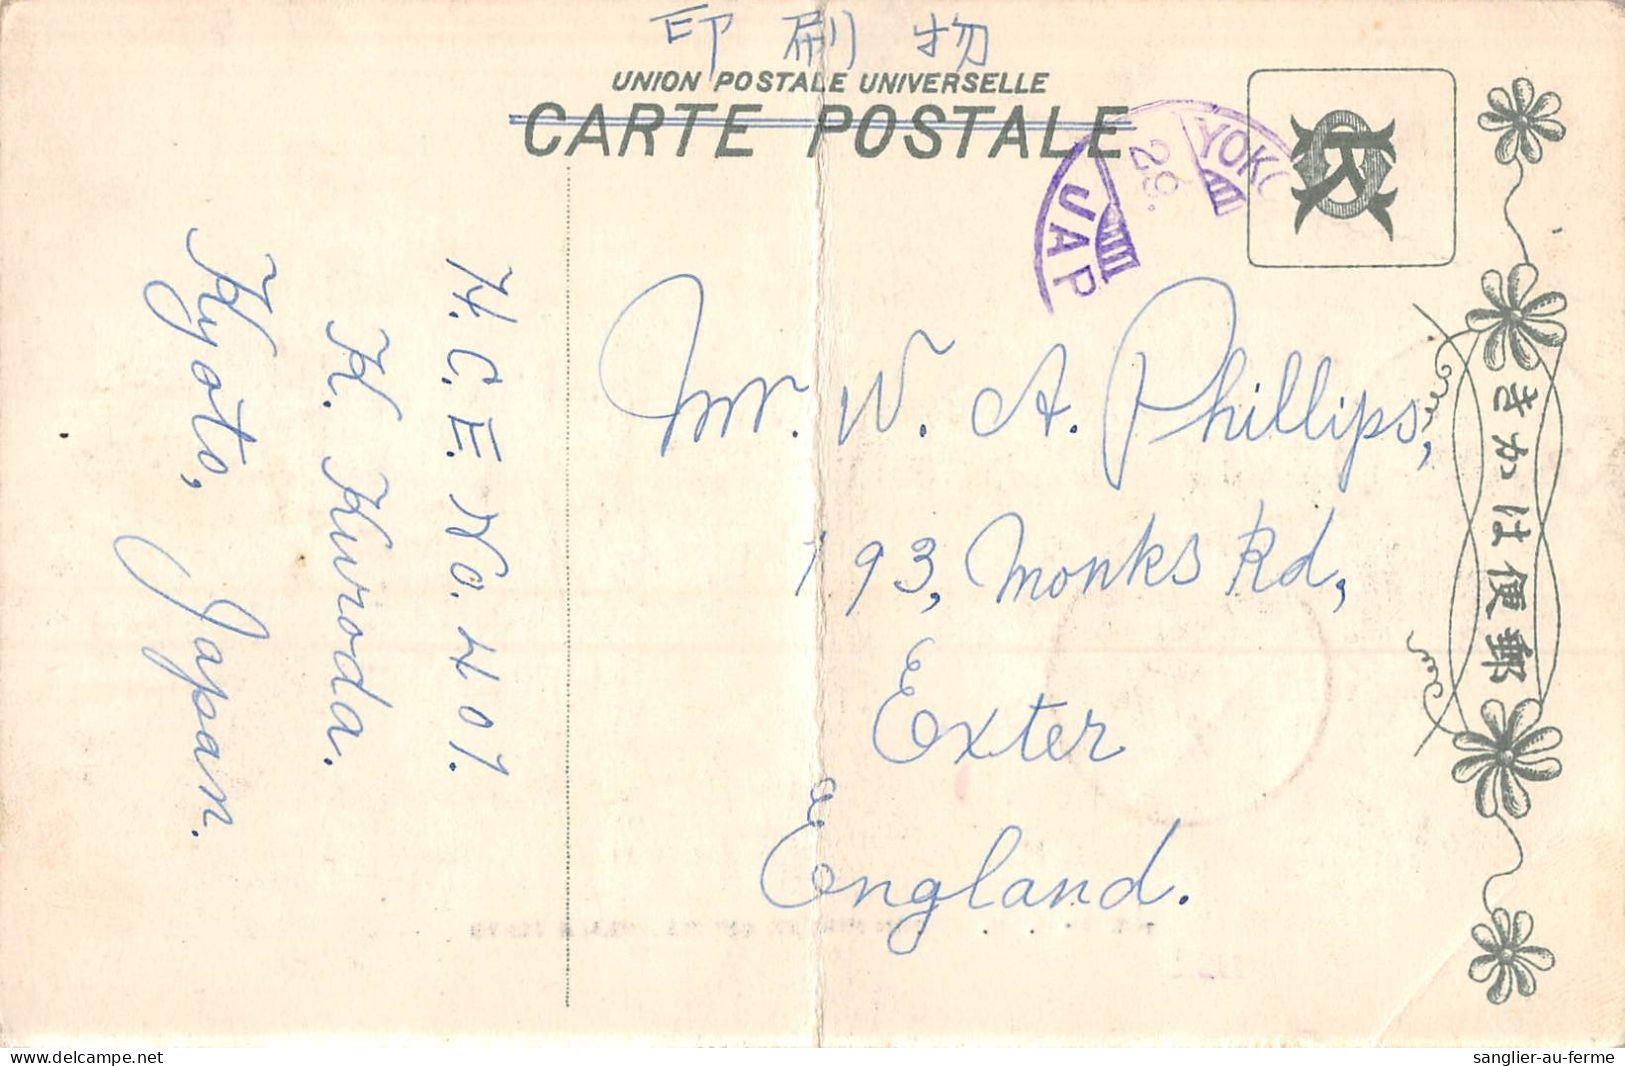 印刷物
UNION POSTALE UNIVERSELLE
CARTE POSTALE
29.
JAP
きかは便郵
Mr. W. A. Phillips,
193, Monks Rd,
Exter
England.
H. C. E. No. 401.
K. Kuroda.
Kyoto, Japan.
www.delcampe.net
sanglier-au-ferme